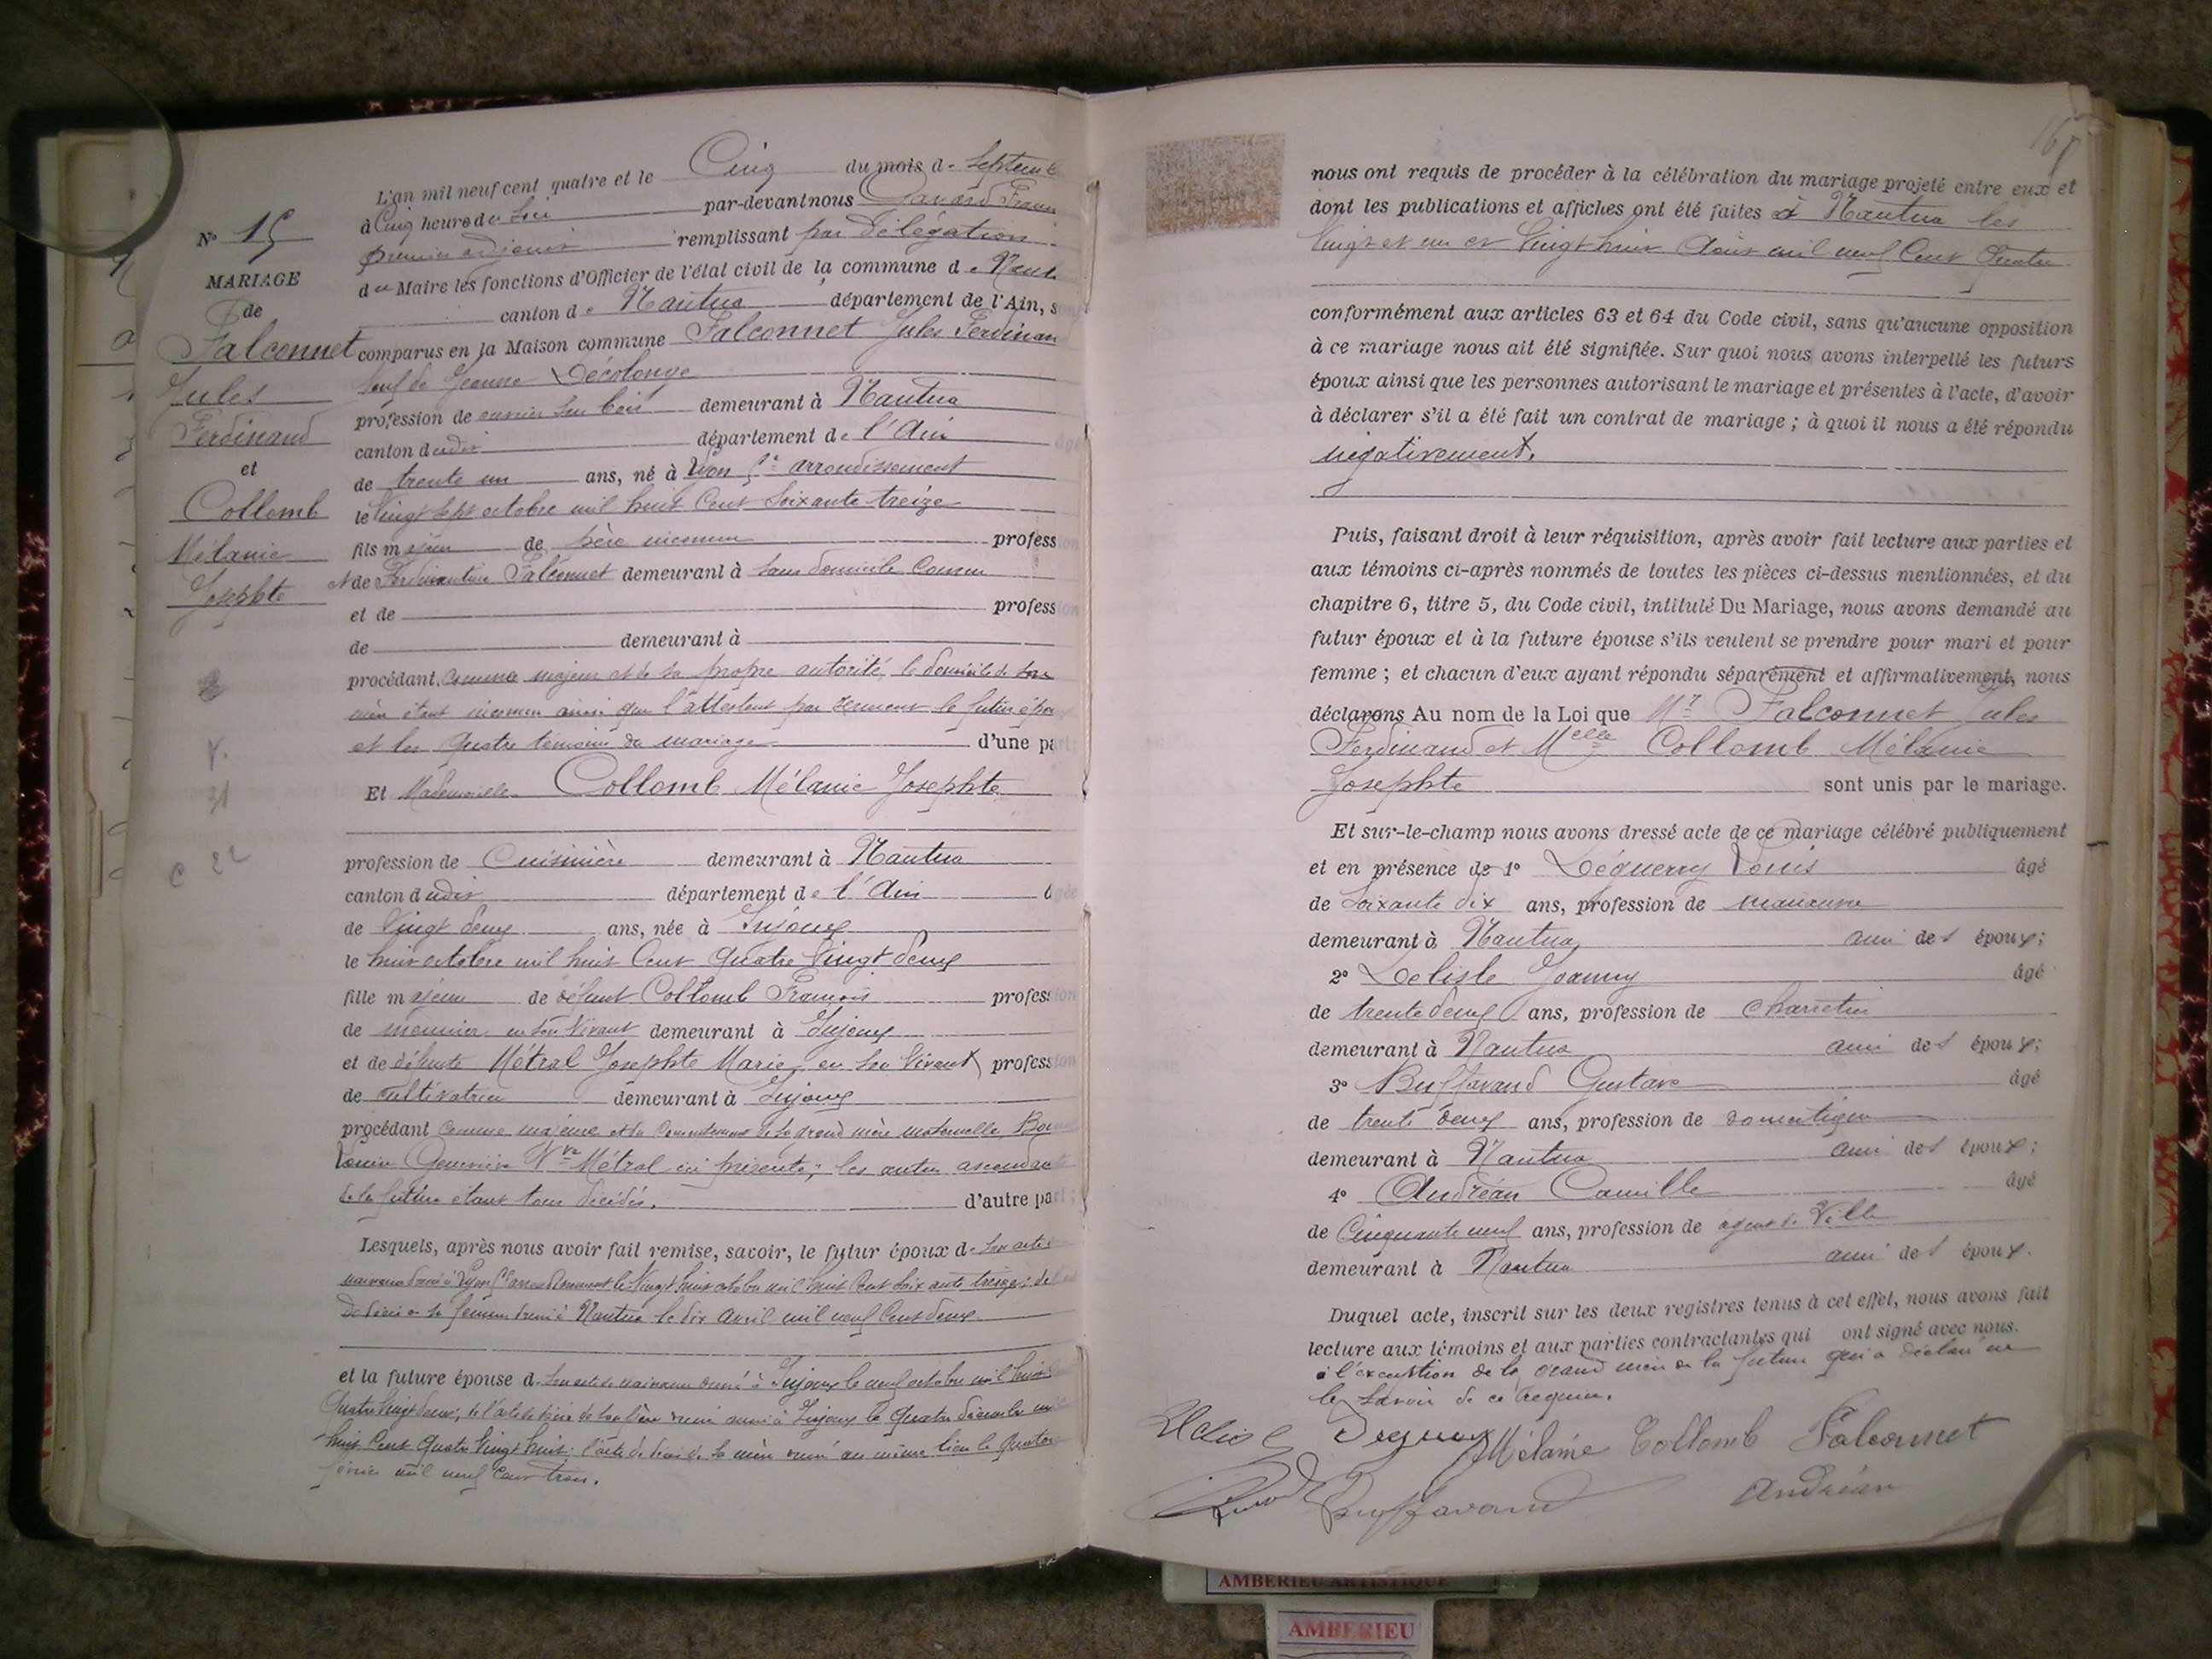 N° 15
MARIAGE
de
Falconnet
Jules
Ferdinand
et
Collomb
Mélanie
Josephte
L'an mil neuf cent quatre et le Cinq du mois de Septemb
à Cinq heure du soir par-devant nous Savard
premier adjoint remplissant par délégation
du Maire les fonctions d'Officier de l'état civil de la commune de Nant
canton de Nantua département de l'Ain, sont
comparus en la Maison commune Falconnet Jules Ferdinan
Veuf de Jeanne Décolonge
profession de ouvrier sur bois demeurant à Nantua
canton dudit département de l'Ain âgé
de trente un ans, né à Lyon arrondissement
le vingt sept octobre mil huit cent soixante treize
fils majeur de père inconnu profession
et de Falconnet demeurant à sans domicile connu
et de profession
de demeurant à
procédant comme majeur et de sa propre autorité, le domicile de sa
mère étant inconnu ainsi que l'attestent par serment le futur époux
et les quatre témoins du mariage d'une part
Et Mademoiselle Collomb Mélanie Josephte
profession de Cuisinière demeurant à Nantua
canton dudit département de l'Ain âgée
de vingt deux ans, née à Injoux
le huit octobre mil huit cent quatre vingt deux
fille majeure de défunt Collomb François profession
de meunier en son vivant demeurant à Injoux
et de défunte Métral Josephte Marie, en son vivant profession
de cultivatrice demeurant à Injoux
procédant comme majeure et du consentement de sa grand mère maternelle
Louise Geneviève Vve Métral ici présente; les autres ascendants
de la future étant tous décédés. d'autre part;
Lesquels, après nous avoir fait remise, savoir, le futur époux de son acte
naissance dressé à Lyon arrondissement le vingt huit octobre mil huit cent soixante treize; de
décès de sa femme dressé à Nantua le dix avril mil neuf cent deux
et la future épouse de son acte de naissance dressé à Injoux le neuf octobre mil huit
quatre vingt deux; de l'acte de décès de son père dressé aussi à Injoux le quatre décembre mil
huit cent quatre vingt huit; l'acte de décès de sa mère dressé au même lieu le
février mil neuf cent trois.
nous ont requis de procéder à la célébration du mariage projeté entre eux et
dont les publications et affiches ont été faites à Nantua les
vingt et un et vingt huit Août mil neuf cent quatre
conformément aux articles 63 et 64 du Code civil, sans qu'aucune opposition
à ce mariage nous ait été signifiée. Sur quoi nous avons interpellé les futurs
époux ainsi que les personnes autorisant le mariage et présentes à l'acte, d'avoir
à déclarer s'il a été fait un contrat de mariage ; à quoi il nous a été répondu
négativement.
Puis, faisant droit à leur réquisition, après avoir fait lecture aux parties et
aux témoins ci-après nommés de toutes les pièces ci-dessus mentionnées, et du
chapitre 6, titre 5, du Code civil, intitulé Du Mariage, nous avons demandé au
futur époux et à la future épouse s'ils veulent se prendre pour mari et pour
femme ; et chacun d'eux ayant répondu séparément et affirmativement, nous
déclarons Au nom de la Loi que Mr Falconnet Jules
Ferdinand et Melle Collomb Mélanie
Josephte sont unis par le mariage.
Et sur-le-champ nous avons dressé acte de ce mariage célébré publiquement
et en présence de 1° Déguerry Louis âgé
de soixante dix ans, profession de manœuvre
demeurant à Nantua ami des époux;
2° Delisle Joanny âgé
de trente deux ans, profession de charretier
demeurant à Nantua ami des époux;
3° Buffavand Gustave âgé
de trente deux ans, profession de domestique
demeurant à Nantua ami des époux;
4° Andréan Camille âgé
de Cinquante neuf ans, profession de agent de Ville
demeurant à Nantua ami des époux.
Duquel acte, inscrit sur les deux registres tenus à cet effet, nous avons fait
lecture aux témoins et aux parties contractantes qui ont signé avec nous.
à l'exception de la grand mère de la future qui a déclaré ne
le savoir de ce requise.
Mélanie Collomb Falconnet
Buffavand Andréan
AMBERIEU ARTISTIQUE
AMBERIEU